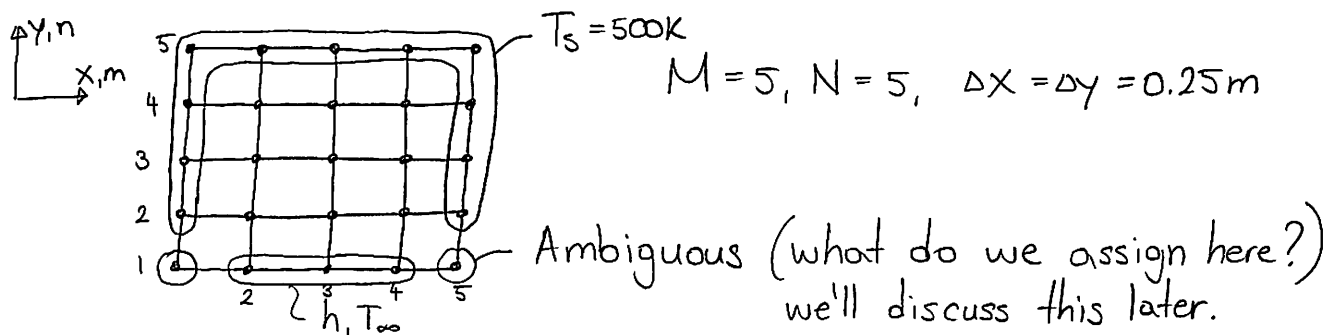 y,n
x,m
5
4
3
2
1
2 3 4 5
h, T∞
Ts = 500K
M = 5, N = 5, Δx = Δy = 0.25m
Ambiguous (what do we assign here?)
we'll discuss this later.